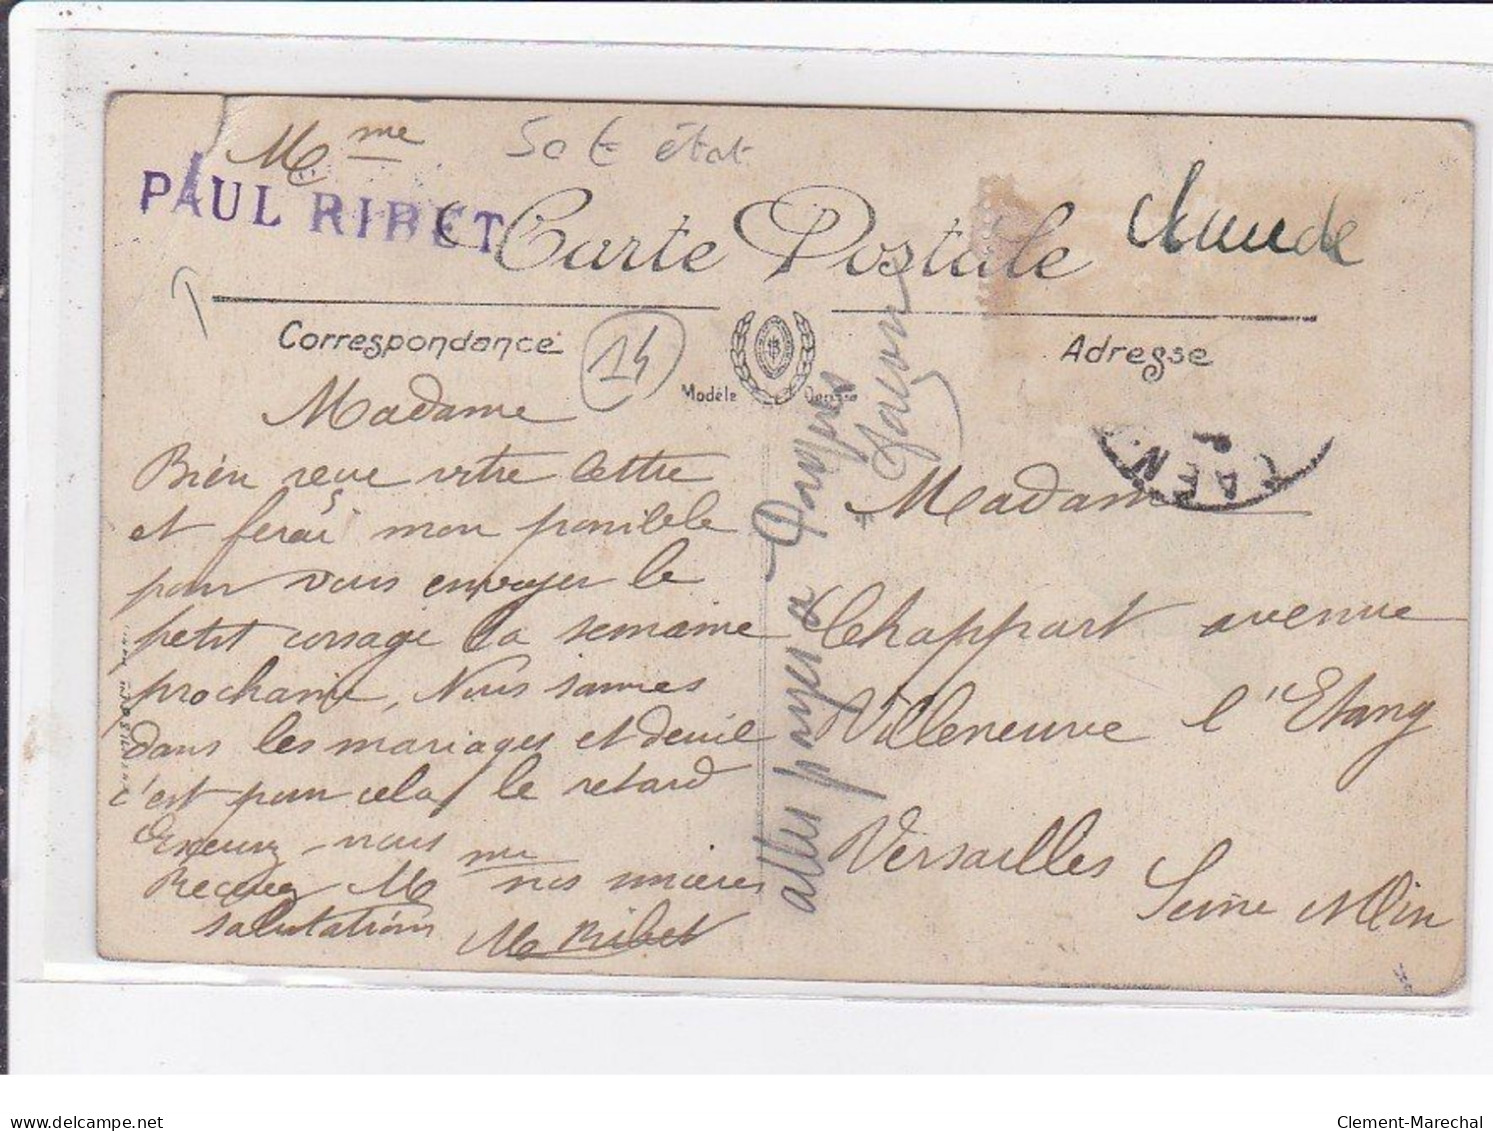 Mme 50 € état
PAUL RIBET
Carte Postale
Claude
Correspondance
14
Adresse
Modèle
CAEN
Madame
Bien reçu votre lettre
et ferai mon possible
pour vous envoyer le
petit corsage la semaine
prochaine, Nous sommes
dans les mariages et deuil
c'est pour cela le retard
Excusez-nous
Recevez Mme nos sincères
salutations M Ribet
Madame
Chappart avenue
Villeneuve l'Etang
Versailles
Seine